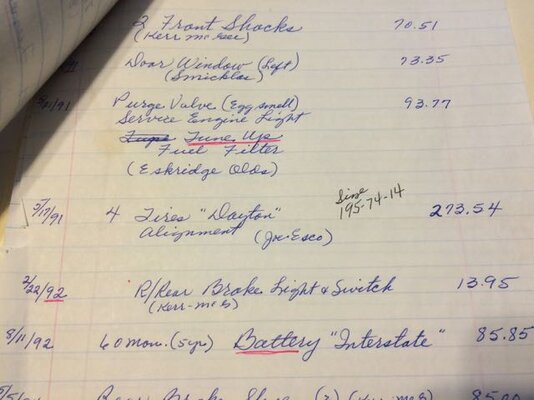 2 Front Shocks 70.51
(Kerr-McGee)
Door Window (Left) 73.35
(Smicklas)
/91 Purge Valve (Egg smell) 93.77
Service Engine Light
Tune Up
Fuel Filter
(Eskridge Olds)
5/17/91 4 Tires "Dayton" Size 273.54
195-74-14
Alignment (Jn-Esco)
2/22/92 R/Rear Brake Light & Switch 13.95
(Kerr-McG)
8/11/92 60 mon. (5yr.) Battery "Interstate" 85.85
Rear Brake Shoe (2) (Kerr-McG) 85.00